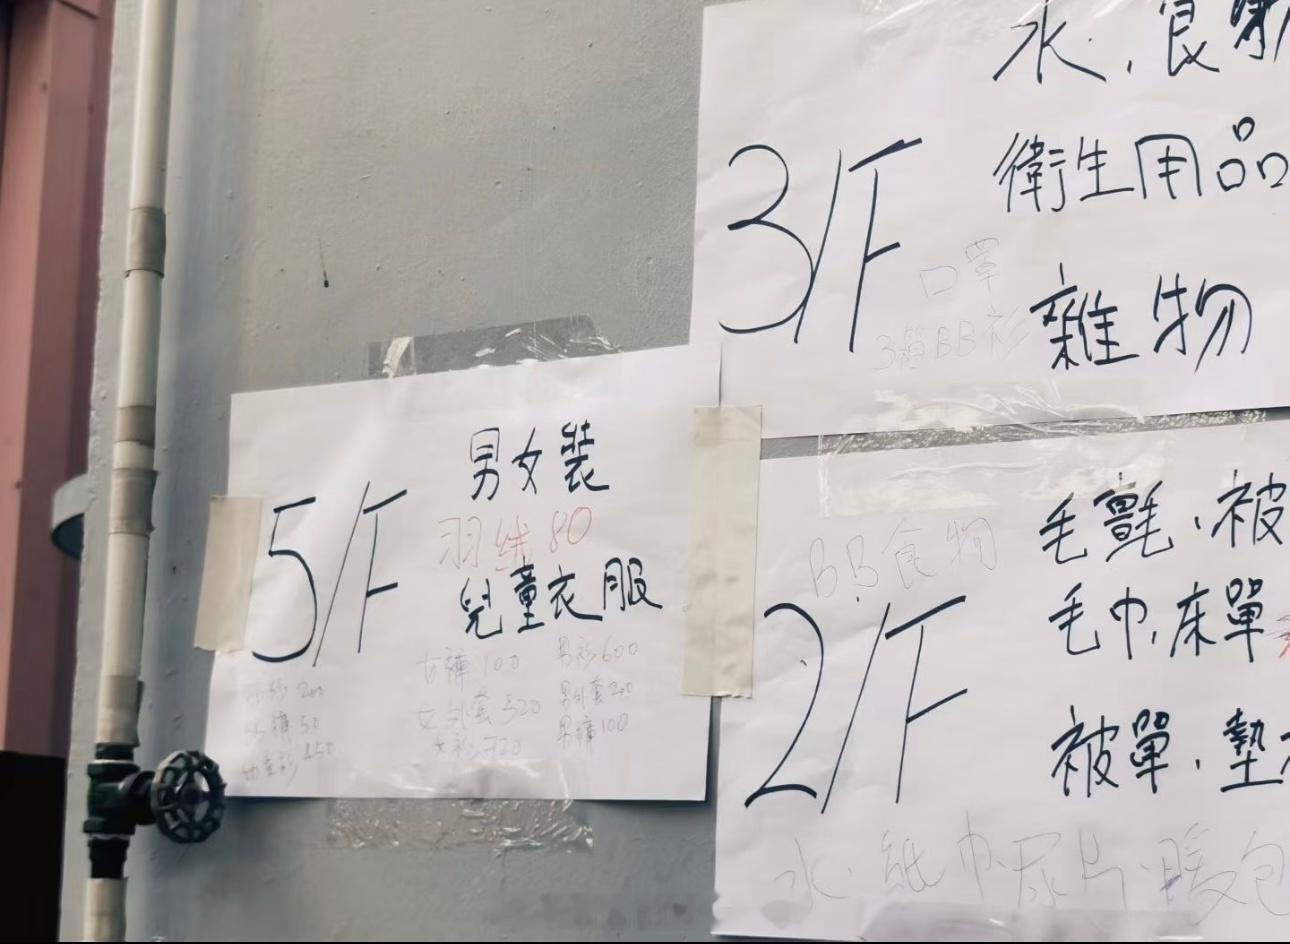 水、食
3/F
衛生用品
口罩
3箱BB衫
雜物
5/F
男女裝
羽絨 80
兒童衣服
女褲 100
男衫 600
200
女外套 520
男外套 200
50
女衫 720
男褲 100
BB食物
2/F
毛氈、被
毛巾、床單
被單、墊
水、紙巾、尿片、暖包